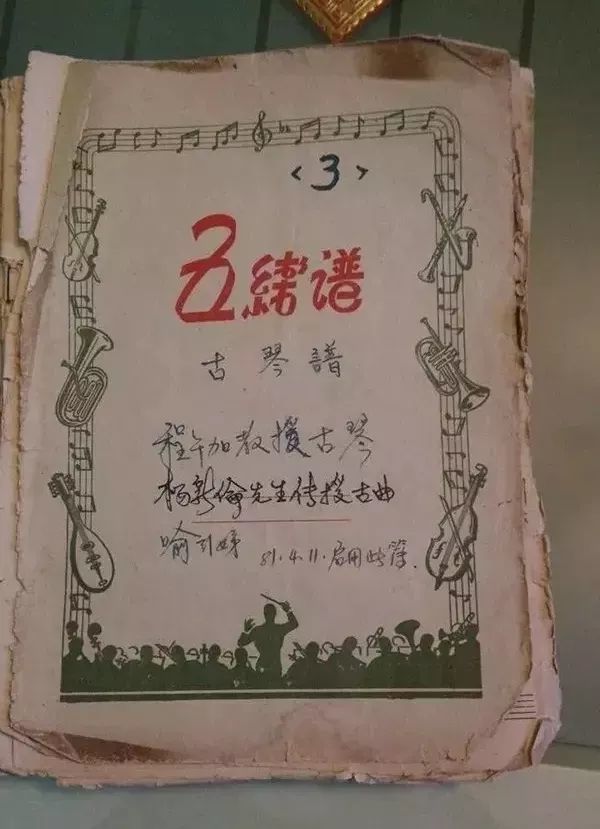 <3>
五线谱
古琴譜
程午加教授古琴
杨新倫先生传授古曲
喻引娣 81.4.11.启用此簿.